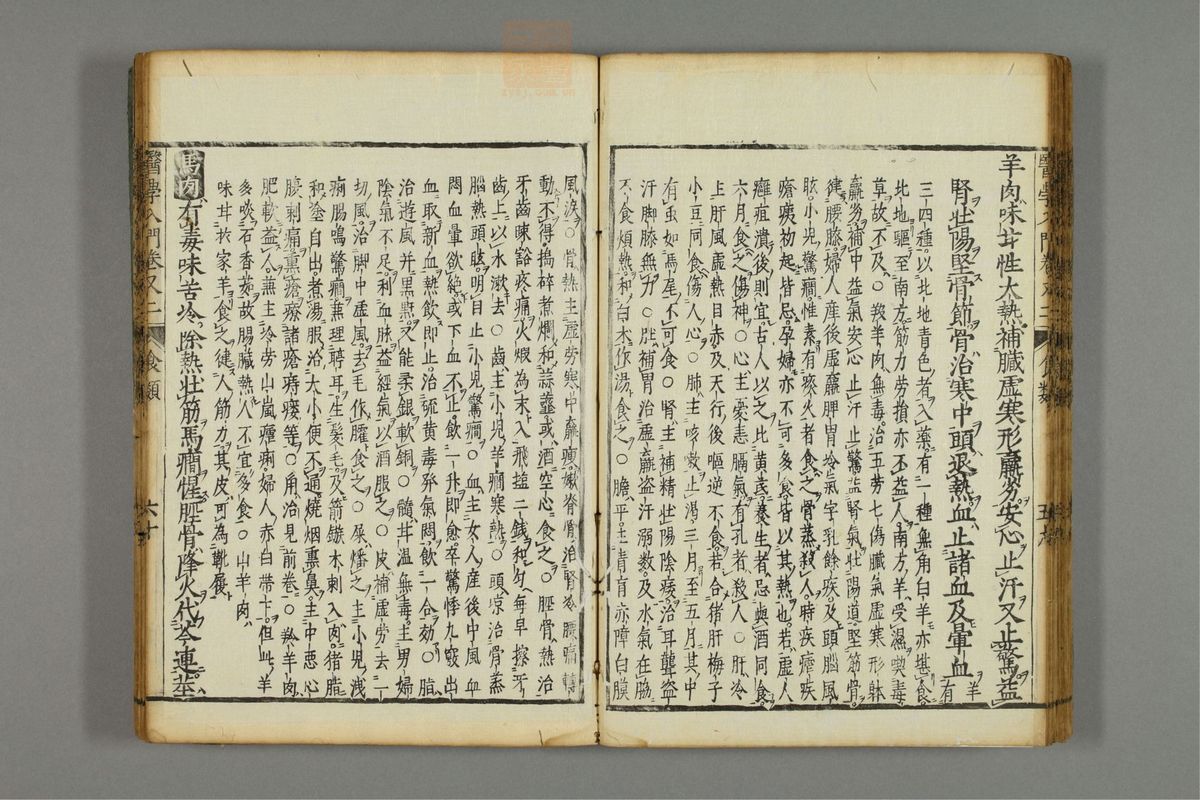 羊肉味甘性大熱補臟虛寒形羸劣安心止汗又止驚益
腎壯陽堅骨節骨治寒中頭退熱血止諸血及暈血羊有
三四種以北地青色者入藥有一種無角白羊亦堪食
北地驅至南方筋力勞損亦不益人南方羊受濕喫毒
草故不及○羖羊肉無毒治五勞七傷臟氣虛寒形體
羸劣補中益氣安心止汗止驚益腎氣壯陽道堅筋骨
健腰膝婦人産後虛羸脾胃冷氣字乳餘疾及頭腦風
眩小兒驚癎惟素有痰火者食之骨蒸殺人時疾瘧疾
瘡痍初起皆忌孕婦亦不可多食皆以其熱也若虛人
癰疽潰後則宜古人以之比黄芪養生者忌與酒同食
六月食之傷神○心主憂恚膈氣有孔者殺人○肝冷
主肝風虛熱目赤及天行後嘔逆不食若合猪肝梅子
小豆同食傷人心○肺主咳嗽止渴三月至五月其中
有虫如馬尾不可食○腎主補精壯陽陰痿治耳聾盜
汗脚膝無力○肚補胃治虛羸盜汗溺數及水氣在脇
不食煩熱和白木作湯食之○膽平主青盲赤障白膜
醫學入門卷又二 食類 五十九
風淚○骨熱主虛勞寒中羸瘦○脊骨治腎冷腰痛轉
動不得搗碎煮爛和蒜韲或酒空心食之○脛骨熱治
牙齒疎豁疼痛火煆為末入飛塩二錢和匀每早擦牙
齒上以水漱去○齒主小兒羊癎寒熱○頭凉治骨蒸
腦熱頭眩明目止小兒驚癎○血主女人産後中風血
悶血暈欲絶或下血不止飲一升即愈卒驚悸九竅出
血取新血熱飲即止治硫黄毒發氣悶飲一合効○脂
治遊風并黒䵟又能柔銀軟銅○髓甘温無毒主男婦
陰氣不足利血脉益經氣以酒服之○皮補虛勞去一
切風治脚中虛風去毛作臛食之○屎燔之主小兒洩
痢腸鳴驚癎兼理聤耳生髮毛及箭鏃木刺入肉猪脂
和塗自出煮湯服治大小便不通燒烟熏鼻主中惡心
腹刺痛熏瘡療諸瘡痔瘻等○角治見前卷○羚羊肉
肥軟益人兼主冷勞山嵐瘧痢婦人赤白帯下但此羊
多啖石香薷故腸臟熱人不宜多食○山羊肉
味甘於家羊食之健人筋力其皮可為靴屐
馬肉有毒味苦冷除熱壯筋馬癎惺脛骨降火代芩連莖
醫學入門卷又二 食類 六十